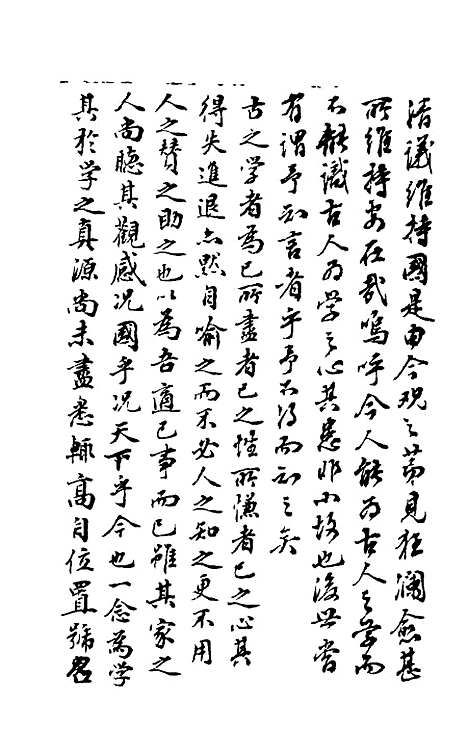 清議維持國是由今观之第見狂瀾愈甚
所維持安在哉嗚呼今人能为古人之學而
不能識古人为學之心其患非小故也後世當
有謂予知言者乎予不得而知之矣
古之学者為已所盡者已之性所慊者已之心其
得失進退亦默自喻之而不必人之知之更不用
人之賛之助之也以為吾適已事而已雖其家之
人尚聽其觀感况國乎况天下乎今也一念為学
其於学之真源尚未盡悉輙高自位置號召